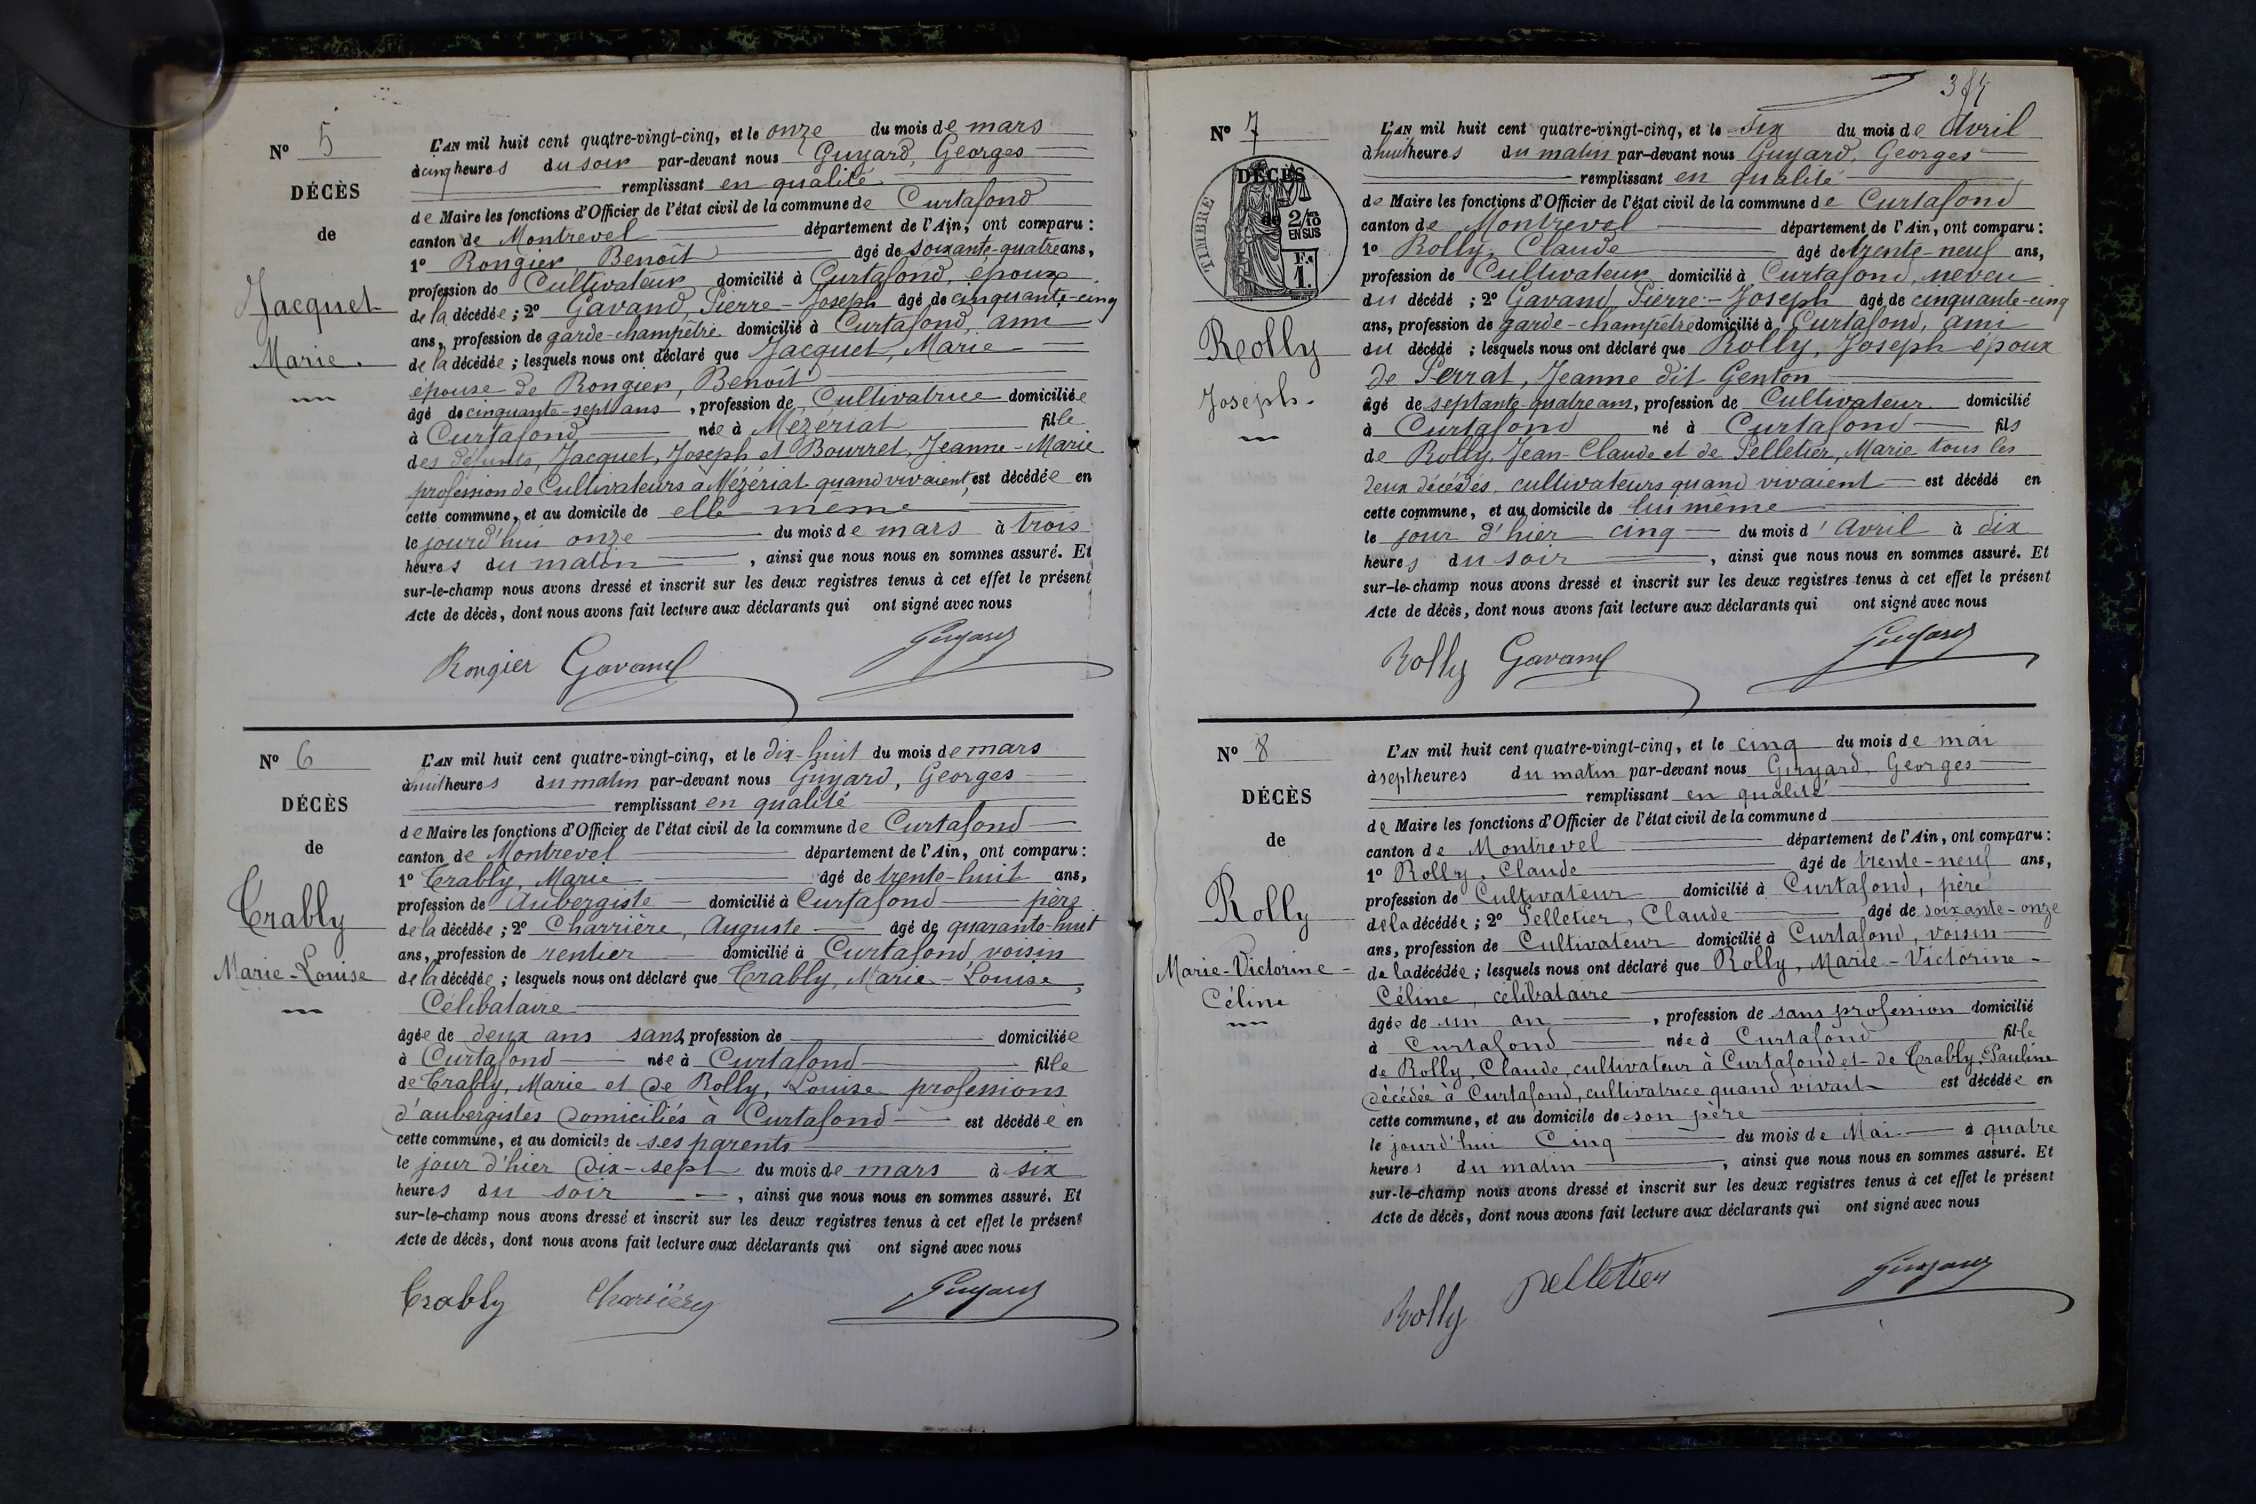 Nº 5
DÉCÈS
de
Jacquet
Marie.
L'AN mil huit cent quatre-vingt-cinq, et le onze du mois de mars
à cinq heures du soir par-devant nous Guyard, Georges
remplissant en qualité
de Maire les fonctions d'Officier de l'état civil de la commune de Curtafond
canton de Montrevel département de l'Ain, ont comparu :
1º Rongier, Benoît âgé de soixante-quatre ans,
profession de Cultivateur domicilié à Curtafond, époux
de la décédée ; 2º Gavand, Pierre-Joseph âgé de cinquante-cinq
ans, profession de garde-champêtre domicilié à Curtafond, ami
de la décédée ; lesquels nous ont déclaré que Jacquet, Marie
épouse de Rongier, Benoît
âgé de cinquante-sept ans, profession de Cultivatrice domiciliée
à Curtafond née à Mézériat fille
des défunts, Jacquet, Joseph et Bourret, Jeanne-Marie
profession de Cultivateurs à Mézériat quand vivaient, est décédée en
cette commune, et au domicile de elle-même
le jourd'hui onze du mois de mars à trois
heures du matin, ainsi que nous nous en sommes assuré. Et
sur-le-champ nous avons dressé et inscrit sur les deux registres tenus à cet effet le présent
Acte de décès, dont nous avons fait lecture aux déclarants qui ont signé avec nous
Rongier Gavand Guyard
Nº 6
DÉCÈS
de
Trably
Marie-Louise
L'AN mil huit cent quatre-vingt-cinq, et le dix-huit du mois de mars
à huit heures du matin par-devant nous Guyard, Georges
remplissant en qualité
de Maire les fonctions d'Officier de l'état civil de la commune de Curtafond
canton de Montrevel département de l'Ain, ont comparu :
1º Trably, Marie âgé de trente-huit ans,
profession de Aubergiste domicilié à Curtafond père
de la décédée ; 2º Charrière, Auguste âgé de quarante-huit
ans, profession de rentier domicilié à Curtafond voisin
de la décédée ; lesquels nous ont déclaré que Trably, Marie-Louise,
Célibataire
âgée de deux ans sans, profession de domiciliée
à Curtafond née à Curtafond fille
de Trably, Marie et de Rolly, Louise professions
d'aubergistes domiciliés à Curtafond est décédée en
cette commune, et au domicile de ses parents
le jour d'hier dix-sept du mois de mars à six
heures du soir, ainsi que nous nous en sommes assuré. Et
sur-le-champ nous avons dressé et inscrit sur les deux registres tenus à cet effet le présent
Acte de décès, dont nous avons fait lecture aux déclarants qui ont signé avec nous
Trably Charrière Guyard
Nº 7
DÉCÈS
de
TIMBRE
2/10
EN SUS
1 F.
Rolly
Joseph.
L'AN mil huit cent quatre-vingt-cinq, et le six du mois de Avril
à huit heures du matin par-devant nous Guyard, Georges
remplissant en qualité
de Maire les fonctions d'Officier de l'état civil de la commune de Curtafond
canton de Montrevel département de l'Ain, ont comparu :
1º Rolly, Claude âgé de trente-neuf ans,
profession de Cultivateur domicilié à Curtafond, neveu
du décédé ; 2º Gavand, Pierre-Joseph âgé de cinquante-cinq
ans, profession de garde-champêtre domicilié à Curtafond, ami
du décédé ; lesquels nous ont déclaré que Rolly, Joseph époux
de Perrat, Jeanne dit Genton
âgé de septante-quatre ans, profession de Cultivateur domicilié
à Curtafond né à Curtafond fils
de Rolly, Jean-Claude et de Pelletier, Marie tous les
deux décédés, cultivateurs quand vivaient est décédé en
cette commune, et au domicile de lui même
le jour d'hier cinq du mois d'Avril à dix
heures du soir, ainsi que nous nous en sommes assuré. Et
sur-le-champ nous avons dressé et inscrit sur les deux registres tenus à cet effet le présent
Acte de décès, dont nous avons fait lecture aux déclarants qui ont signé avec nous
Rolly Gavand Guyard
Nº 8
DÉCÈS
de
Rolly
Marie-Victorine-
Céline
L'AN mil huit cent quatre-vingt-cinq, et le cinq du mois de mai
à sept heures du matin par-devant nous Guyard, Georges
remplissant en qualité
de Maire les fonctions d'Officier de l'état civil de la commune d
canton de Montrevel département de l'Ain, ont comparu :
1º Rolly, Claude âgé de trente-neuf ans,
profession de Cultivateur domicilié à Curtafond, père
de la décédée ; 2º Pelletier, Claude âgé de soixante-onze
ans, profession de Cultivateur domicilié à Curtafond, voisin
de la décédée ; lesquels nous ont déclaré que Rolly, Marie-Victorine-
Céline, célibataire
âgée de un an, profession de sans profession domicilié
à Curtafond née à Curtafond fille
de Rolly, Claude, cultivateur à Curtafond et de Trably, Pauline
décédée à Curtafond, cultivatrice quand vivait est décédée en
cette commune, et au domicile de son père
le jourd'hui Cinq du mois de Mai à quatre
heures du matin, ainsi que nous nous en sommes assuré. Et
sur-le-champ nous avons dressé et inscrit sur les deux registres tenus à cet effet le présent
Acte de décès, dont nous avons fait lecture aux déclarants qui ont signé avec nous
Rolly pelletier Guyard